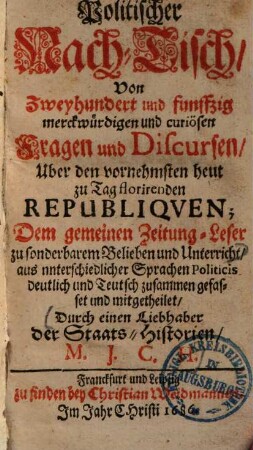 Politischer
Nach-Tisch/
Von
Zweyhundert und funffzig
merckwürdigen und curiösen
Fragen und Discursen/
Uber den vornehmsten heut
zu Tag florirenden
REPUBLIQVEN;
Dem gemeinen Zeitung-Leser
zu sonderbarem Belieben und Unterricht/
aus unterschiedlicher Sprachen Politicis
deutlich und Teutsch zusammen gefas-
set und mitgetheilet/
Durch einen Liebhaber
der Staats-Historien/
M. J. C. H.
Franckfurt und Leipzig
zu finden bey Christian Weidmannen
Im Jahr Christi 1686
IN
AUGSBURG